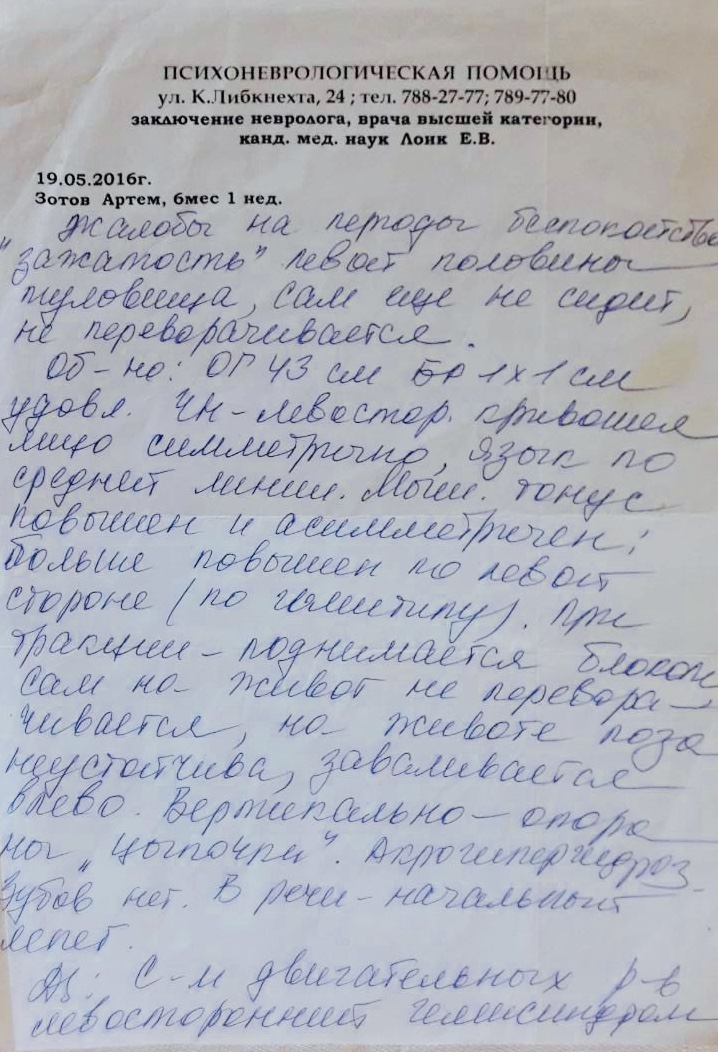 ПСИХОНЕВРОЛОГИЧЕСКАЯ ПОМОЩЬ
ул. К.Либкнехта, 24 ; тел. 788-27-77; 789-77-80
заключение невролога, врача высшей категории,
канд. мед. наук Лоик Е.В.
19.05.2016г.
Зотов Артем, 6мес 1 нед.
Жалобы на периоды беспокойства
"зажатость" левой половины
туловища, сам еще не сидит,
не переворачивается.
Об-но: ОГ 43 см БР 1х1 см
удовл. ЧН-левостор. кривошея
лицо симметрично, язык по
средней линии. Мыш. тонус
повышен и асимметричен;
больше повышен по левой
стороне (по гемитипу). При
тракции - поднимается блоком
сам на живот не перевора-
чивается, на животе поза
неустойчива, заваливается
влево. Вертикально - опора
на „цыпочки". Акрогипергидроз.
Зубов нет. В речи - начальный
лепет.
Дз: С-м двигательных р-в
левосторонний гемисиндром